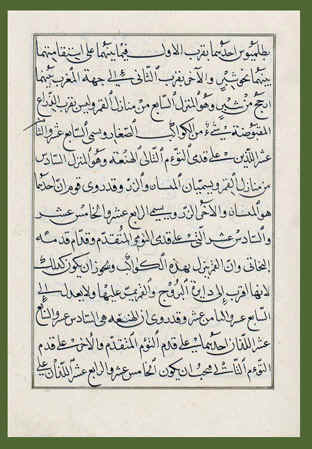 بطلميوس احدهما بقرب الاول فيما بينهما على استقامتهما
بينهما نحو شبرين والآخر بقرب الثاني الى جهة المغرب بينهما
ارجح من شبرين وهو المنزل السابع من منازل القمر وليس بقرب الذراع
المقبوضة شيء من الكواكب الصغار ويسمى السابع عشر والثا
عشر اللذين على قدمي التوءم التالي الهنعة وهو المنزل السادس
من منازل القمر ويسميان الميسان والزر وقد روى قوم ان احدهما
هو الميسان والآخر الزر ويسمى الرابع عشر والخامس عشر
والسادس عشر التي على قدمي التوءم المتقدم وقدام قدمه
البخاتي وان القمر ينزل بهذه الكواكب ويجوز ان يكون كذلك
لانها اقرب الى دائرة البروج والقمر عليها ولا يعدل الى
السابع عشر والثامن عشر وقد روى ان الهنعة هي السادس عشر والسابع
عشر اللذان احدهما على قدم التوءم المتقدم والآخر على قدم
التوءم التالي فيجب ان يكون الخامس عشر والرابع عشر اللذان على